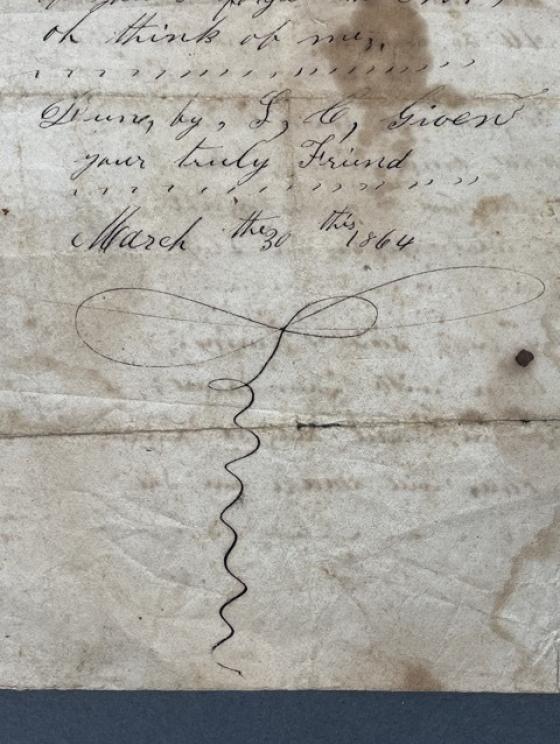 oh think of me,,
Dun, by, L, C, Given
your truly Friend
March the 30 this 1864